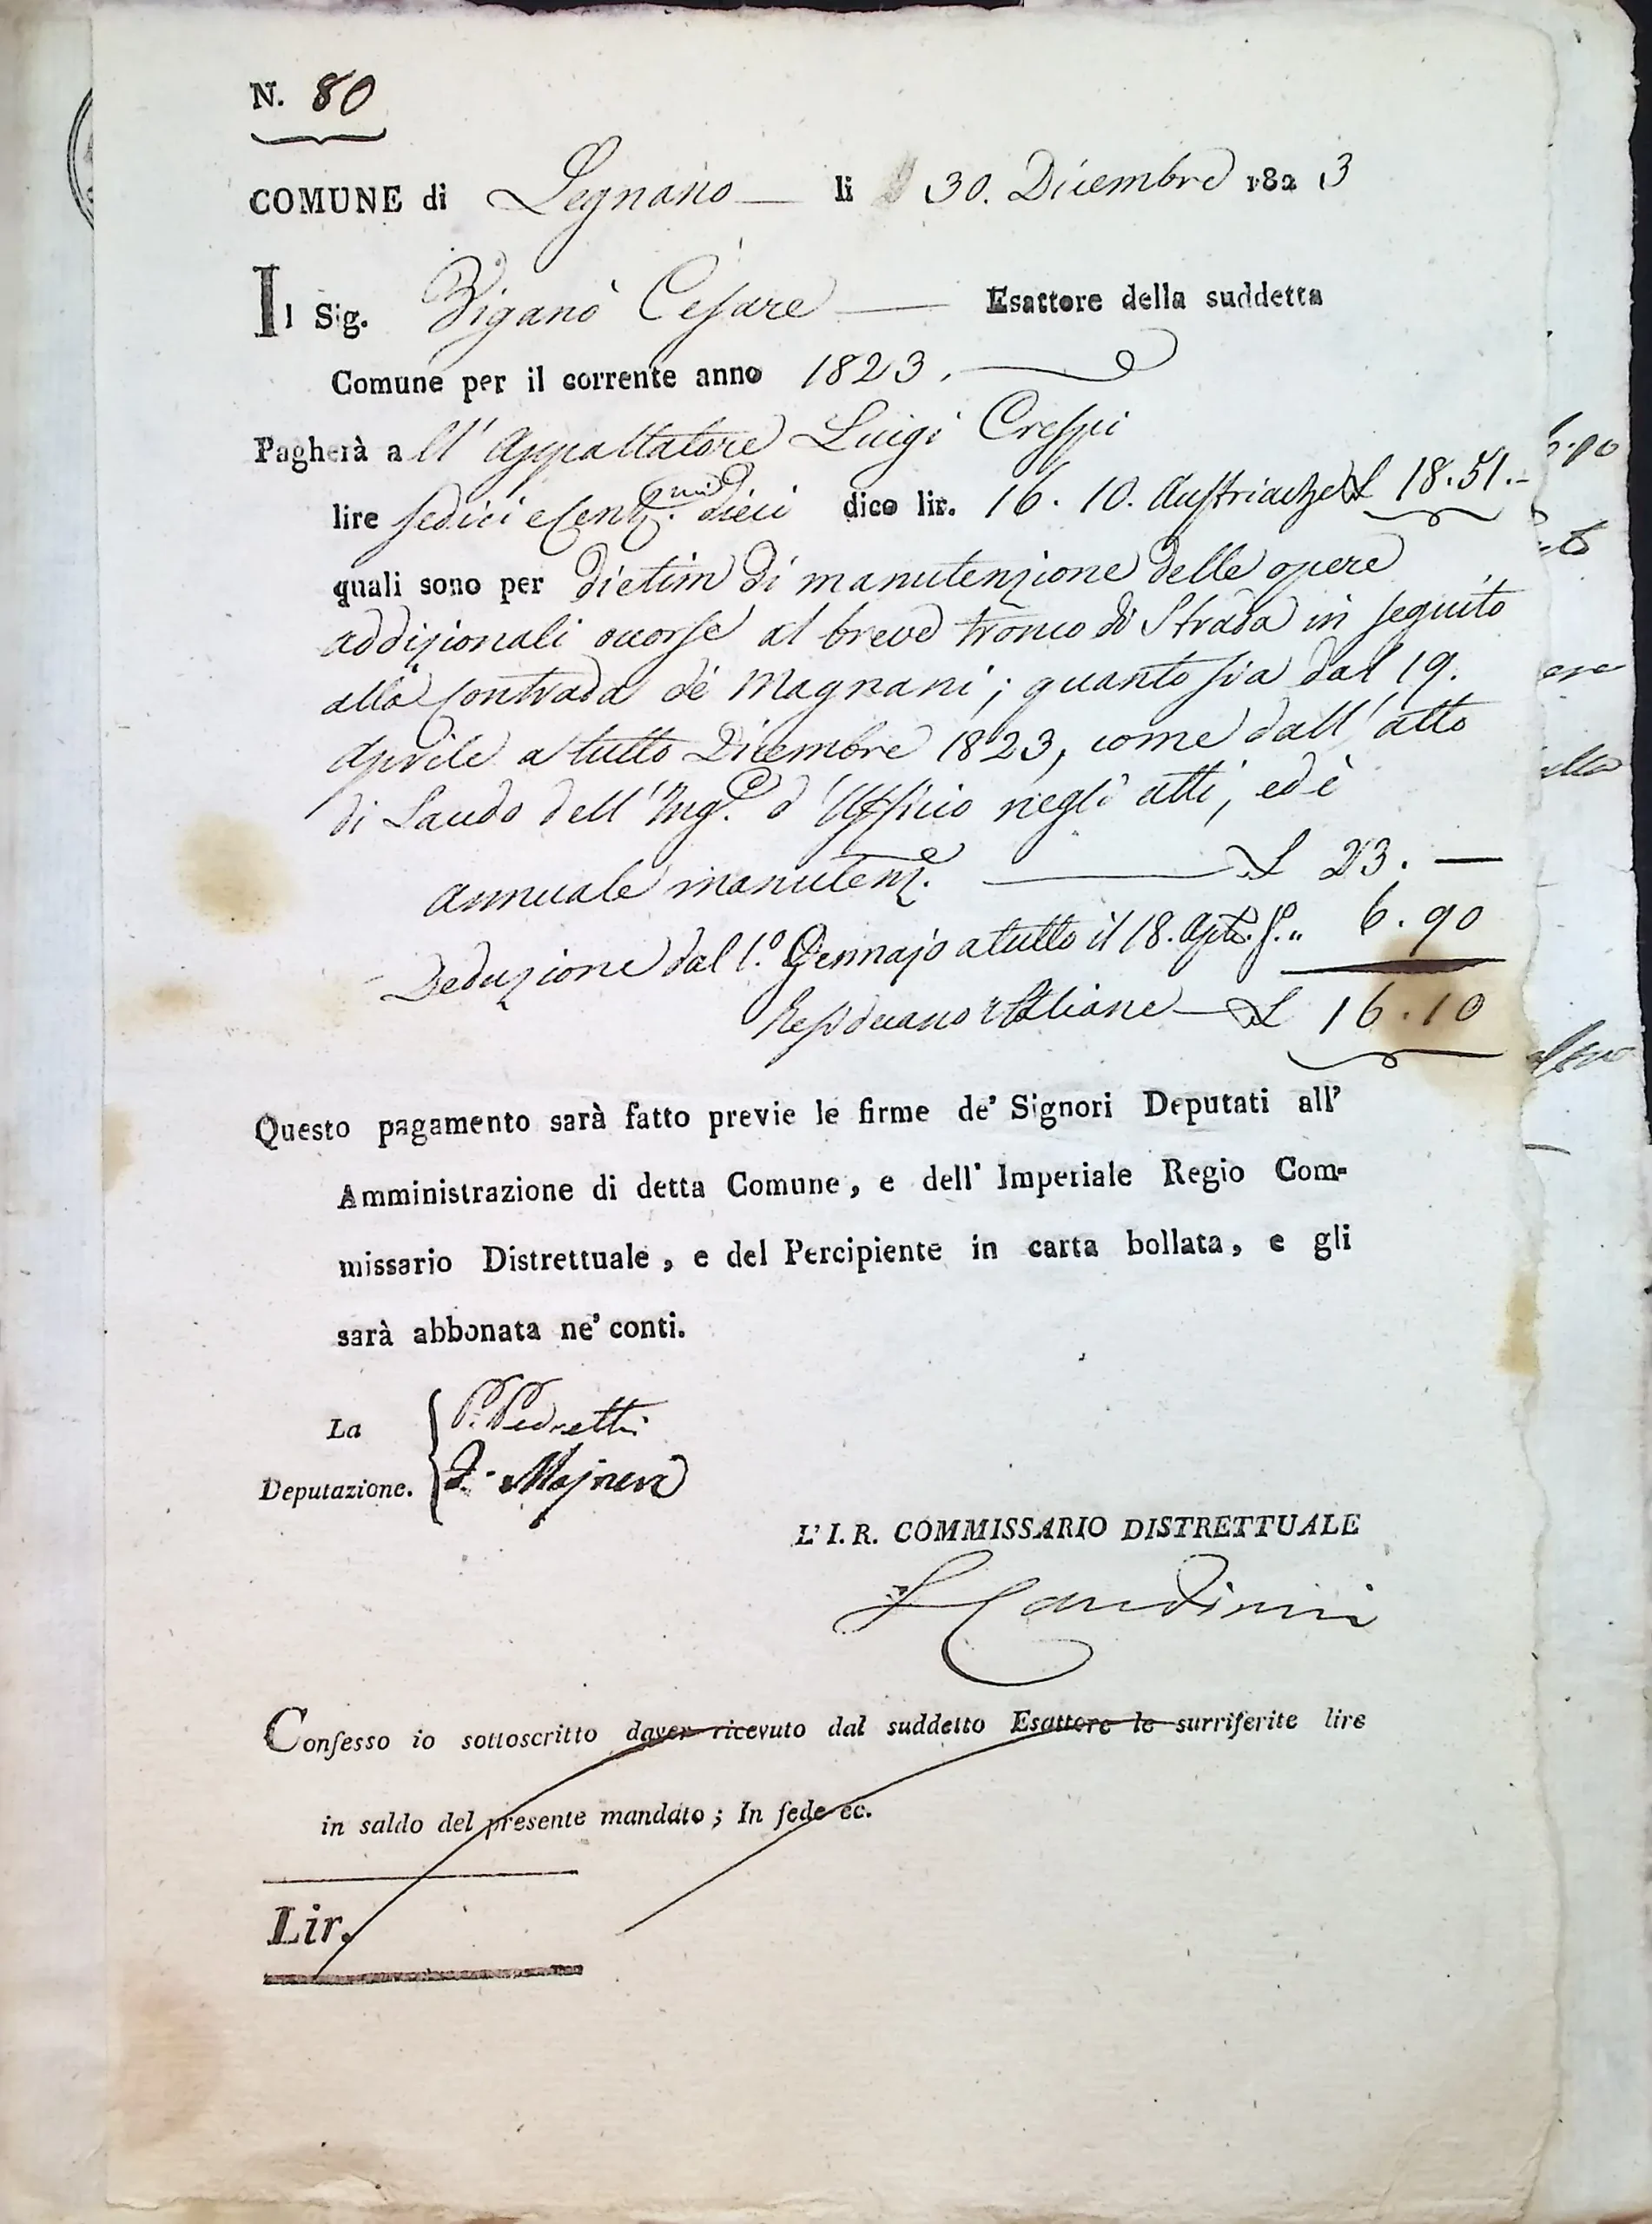 N. 80
COMUNE di Legnano li 30. Dicembre 1823
Il Sig. Viganò Cesare Esattore della suddetta
Comune per il corrente anno 1823.
Pagherà all' Appaltatore Luigi Crespi
lire sedici e Cent.mi dieci dico lir. 16. 10. Austriache £ 18.51.-
quali sono per dietim di manutenzione delle opere
addizionali occorse al breve tronco di Strada in seguito
alla Contrada de Magnani; quanto sia dal 19.
Aprile a tutto Dicembre 1823, come dall' atto
di Laudo dell' Ing.e d' Ufficio negli atti, ed è
annuale manutenz.e £ 23. —
Deduzione dal 1.o Gennajo a tutto il 18. Apr.e „ 6.90
Residuano Italiane £ 16.10
Questo pagamento sarà fatto previe le firme de' Signori Deputati all'
Amministrazione di detta Comune, e dell' Imperiale Regio Com-
missario Distrettuale, e del Percipiente in carta bollata, e gli
sarà abbonata ne' conti.
La
Deputazione.
P. Pedretti
L' I. R. COMMISSARIO DISTRETTUALE
Confesso io sottoscritto daver ricevuto dal suddetto Esattore le surriferite lire
in saldo del presente mandato; In fede ec.
Lir.